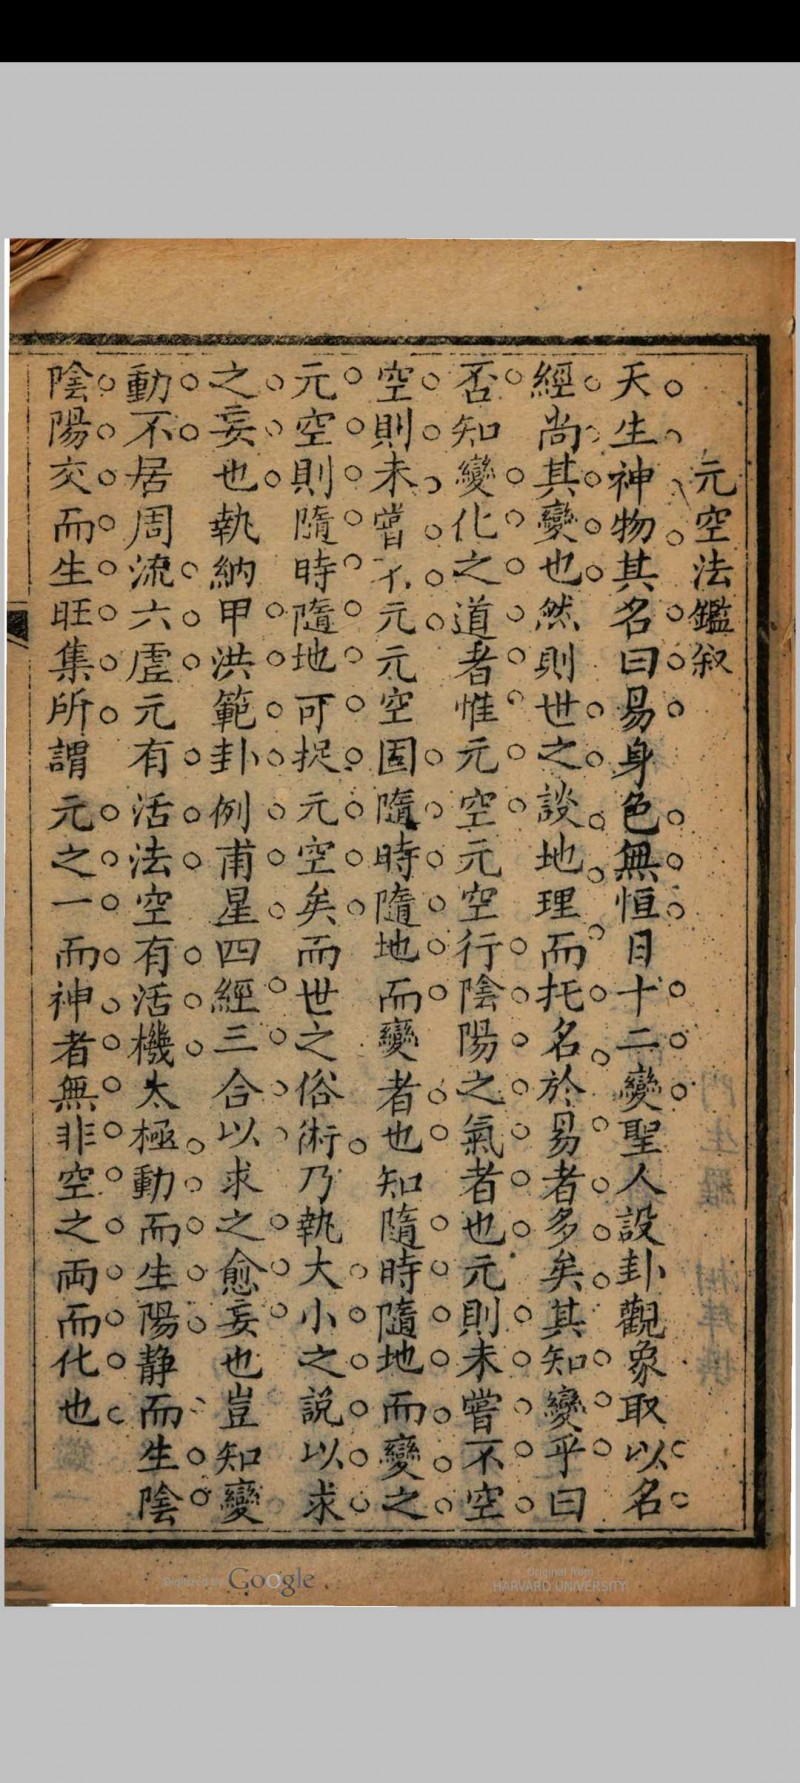 元空法鑑叙
天生神物其名曰易身色無恒日十二變聖人設卦觀象取以名
經尚其變也然則世之談地理而托名於易者多矣其知變乎曰
否知變化之道者惟元空元空行陰陽之氣者也元則未嘗不空
空則未嘗不元元空固隨時隨地而變者也知隨時隨地而變之
元空則隨時隨地可捉元空矣而世之俗術乃執大小之說以求
之妄也執納甲洪範卦例甫星四經三合以求之愈妄也豈知變
動不居周流六虛元有活法空有活機太極動而生陽静而生陰
陰陽交而生旺集所謂元之一而神者無非空之両而化也
Digitized by Google
Original from
HARVARD UNIVERSITY